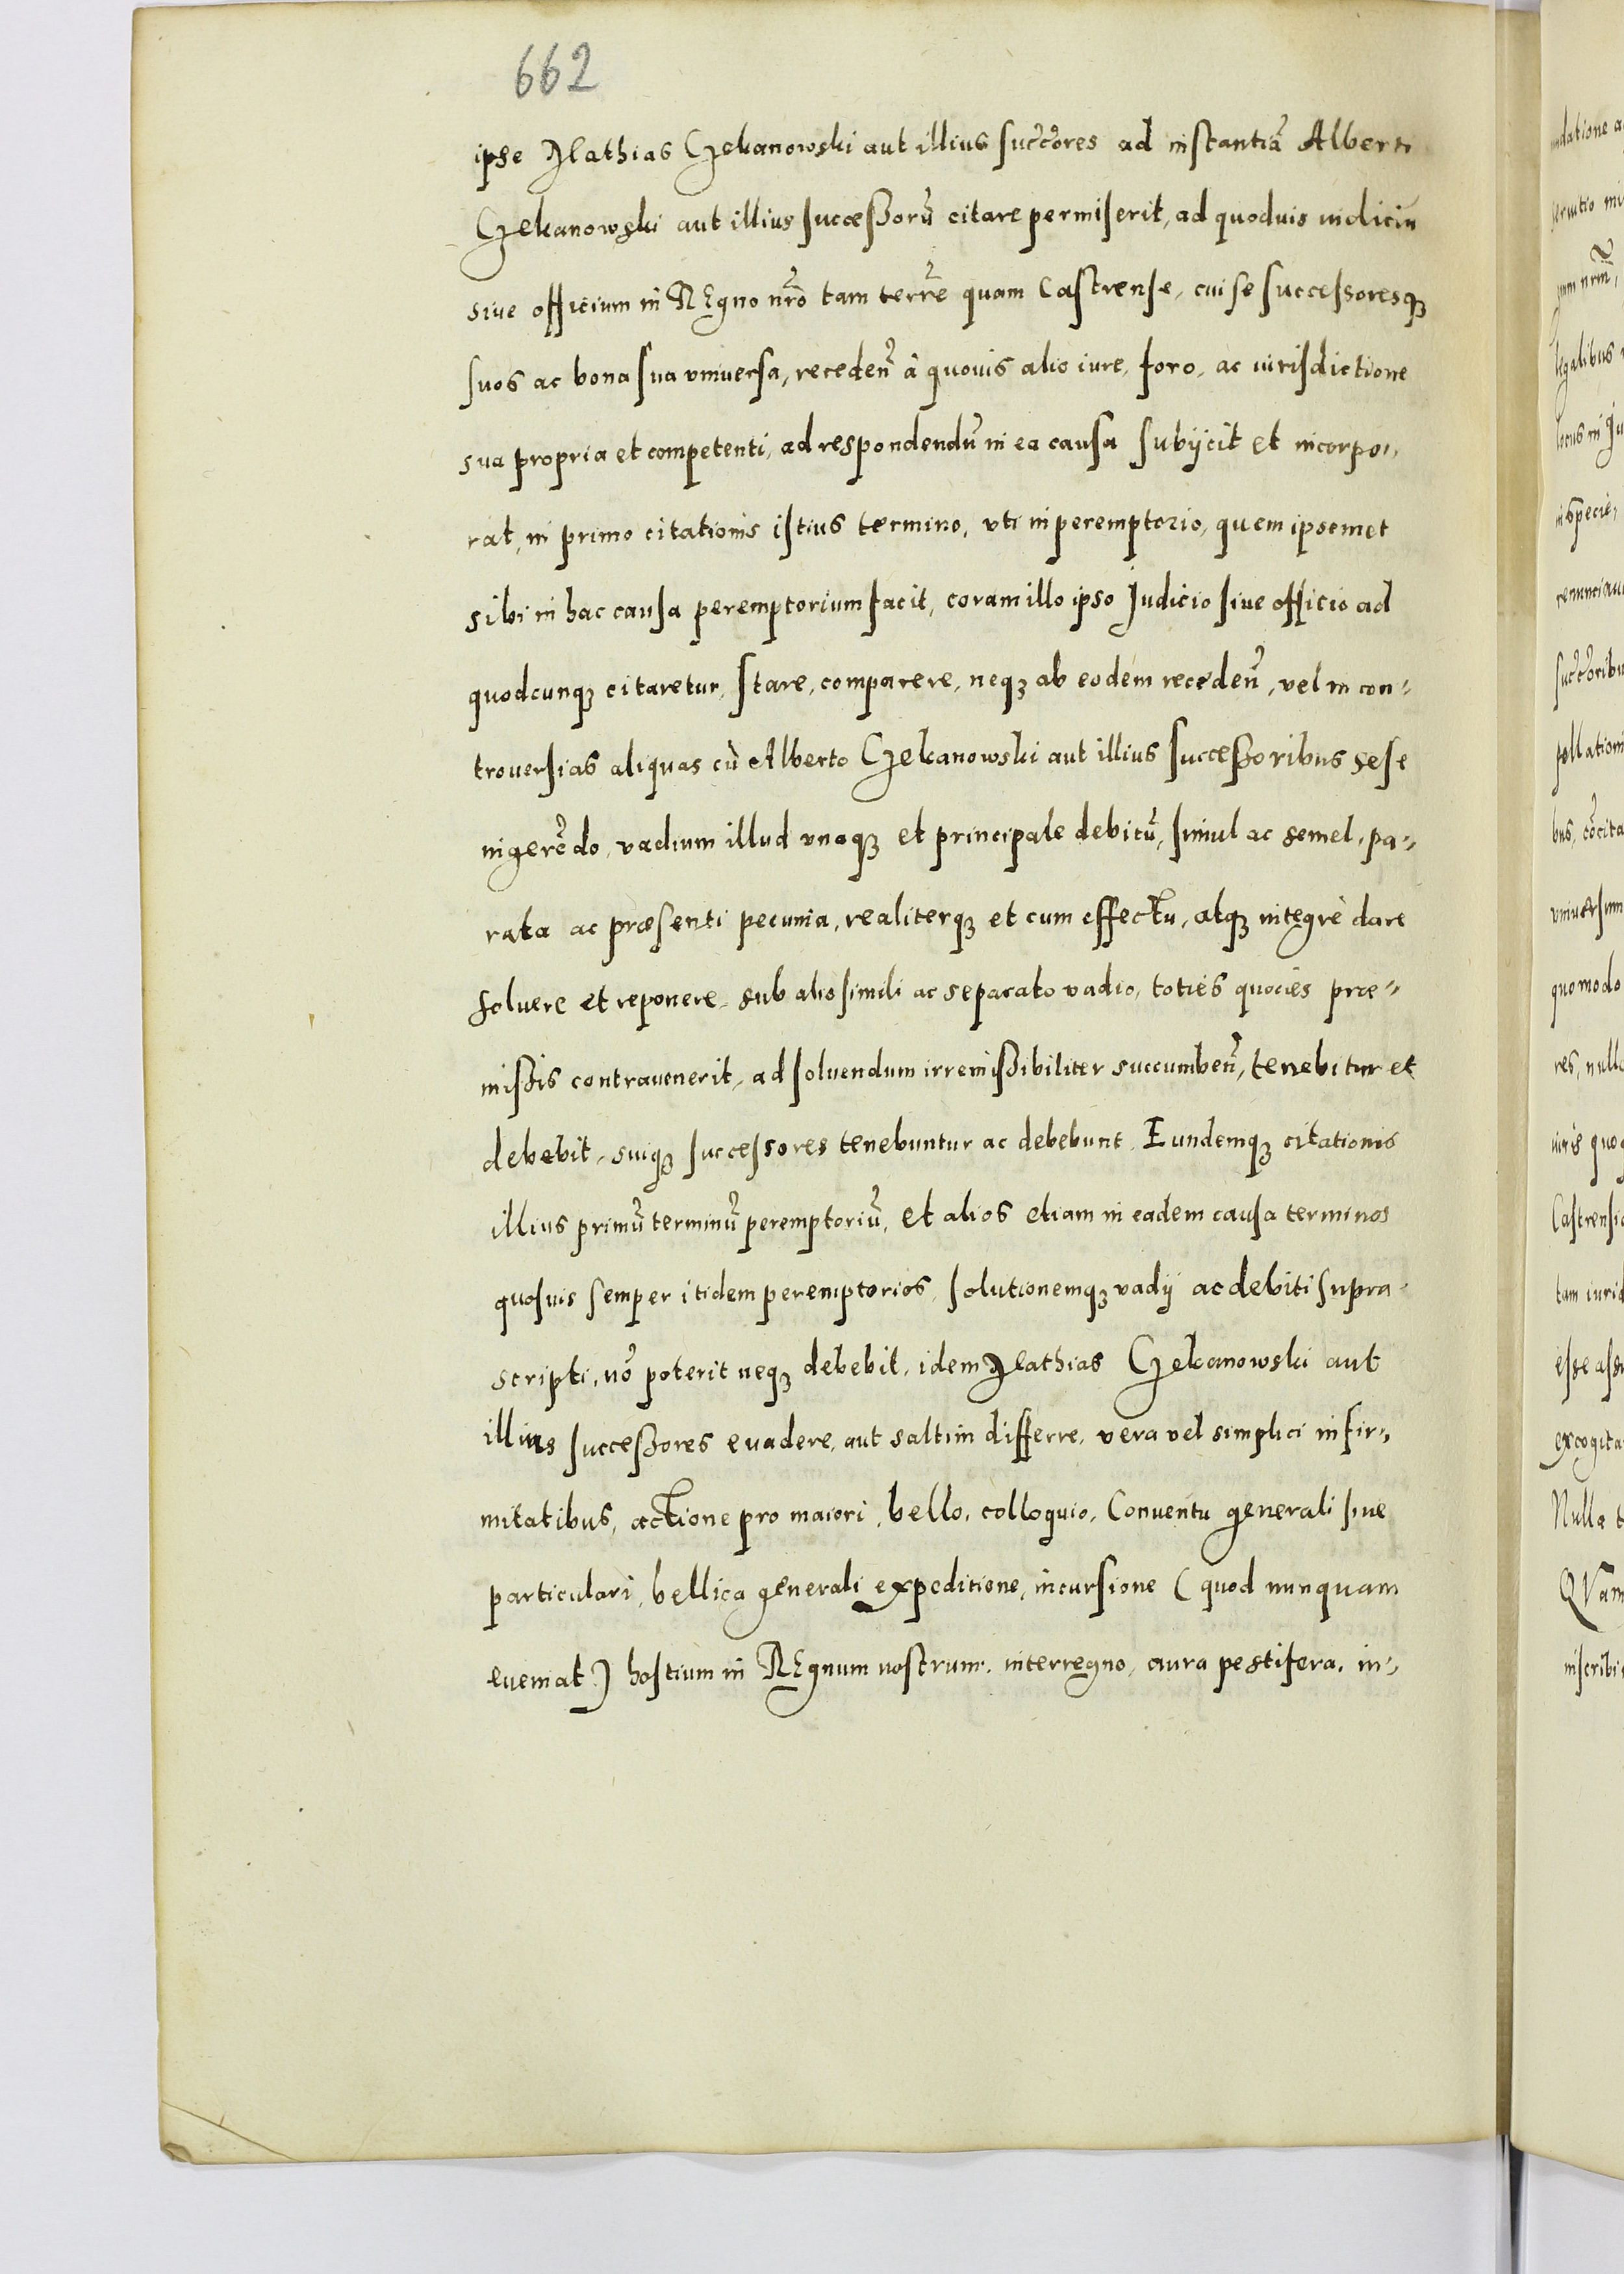 662
ipse Mathias Czekanowski aut illius succ̃ores ad instantiã Alberti
Czekanowski aut illius successorũ citare permiserit, ad quoduis iudiciũ
siue officium in REgno nr̃o tam terr̃e quam Castrense, cui se successoresqꝫ
suos ac bona sua vniuersa, recedeñ à quouis alio iure, foro, ac iurisdictione
sua propria et competenti, ad respondendũ in ea causa subijcit et incorpo-
rat, in primo citationis istius termino, vti in peremptorio, quem ipsemet
sibi in hac causa peremptorium facit, coram illo ipso Judicio siue officio ad
quodcunqꝫ citaretur, stare, comparere, neqꝫ ab eodem recedeñ, vel in con-
trouersias aliquas cũ Alberto Czekanowski aut illius successoribus sese
ingerẽdo, vadium illud vnaqꝫ et principale debitũ, simul ac semel, pa-
rata ac præsenti pecunia, realiterqꝫ et cum effectu, atqꝫ integrè dare
soluere et reponere, sub alio simili ac separato vadio, toties quocies præ-
missis contrauenerit, ad soluendum irremissibiliter succumbeñ, tenebitur et
debebit, suiqꝫ successores tenebuntur ac debebunt. Eundemqꝫ citationis
illius primũ terminũ peremptoriũ, et alios etiam in eadem causa terminos
quosuis semper itidem peremptorios, solutionemqꝫ vadij ac debiti supra-
scripti, nõ poterit neqꝫ debebit, idem Mathias Czekanowski aut
illius successores euadere, aut saltim differre, vera vel simplici infir-
mitatibus, actione pro maiori, bello, colloquio, Conuentu generali siue
particulari, bellica generali expeditione, incursione (quod nunquam
eueniat) hostium in REgnum nostrum, interregno, aura pestifera, in-